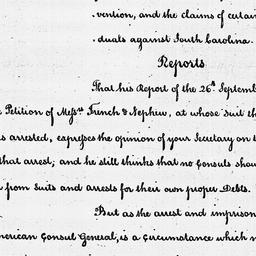 vention, and the claims of certain
duals against South Carolina.
Reports
That his Report of the 26th Septemb
Petition of Messrs French & Nephew, at whose Suit th
s arrested, expresses the opinion of your Secretary on t
that arrest; and he still thinks that no Consuls shou
from Suits and arrests for their own proper Debts.
But as the arrest and imprison
merican Consul General, is a Circumstance which m